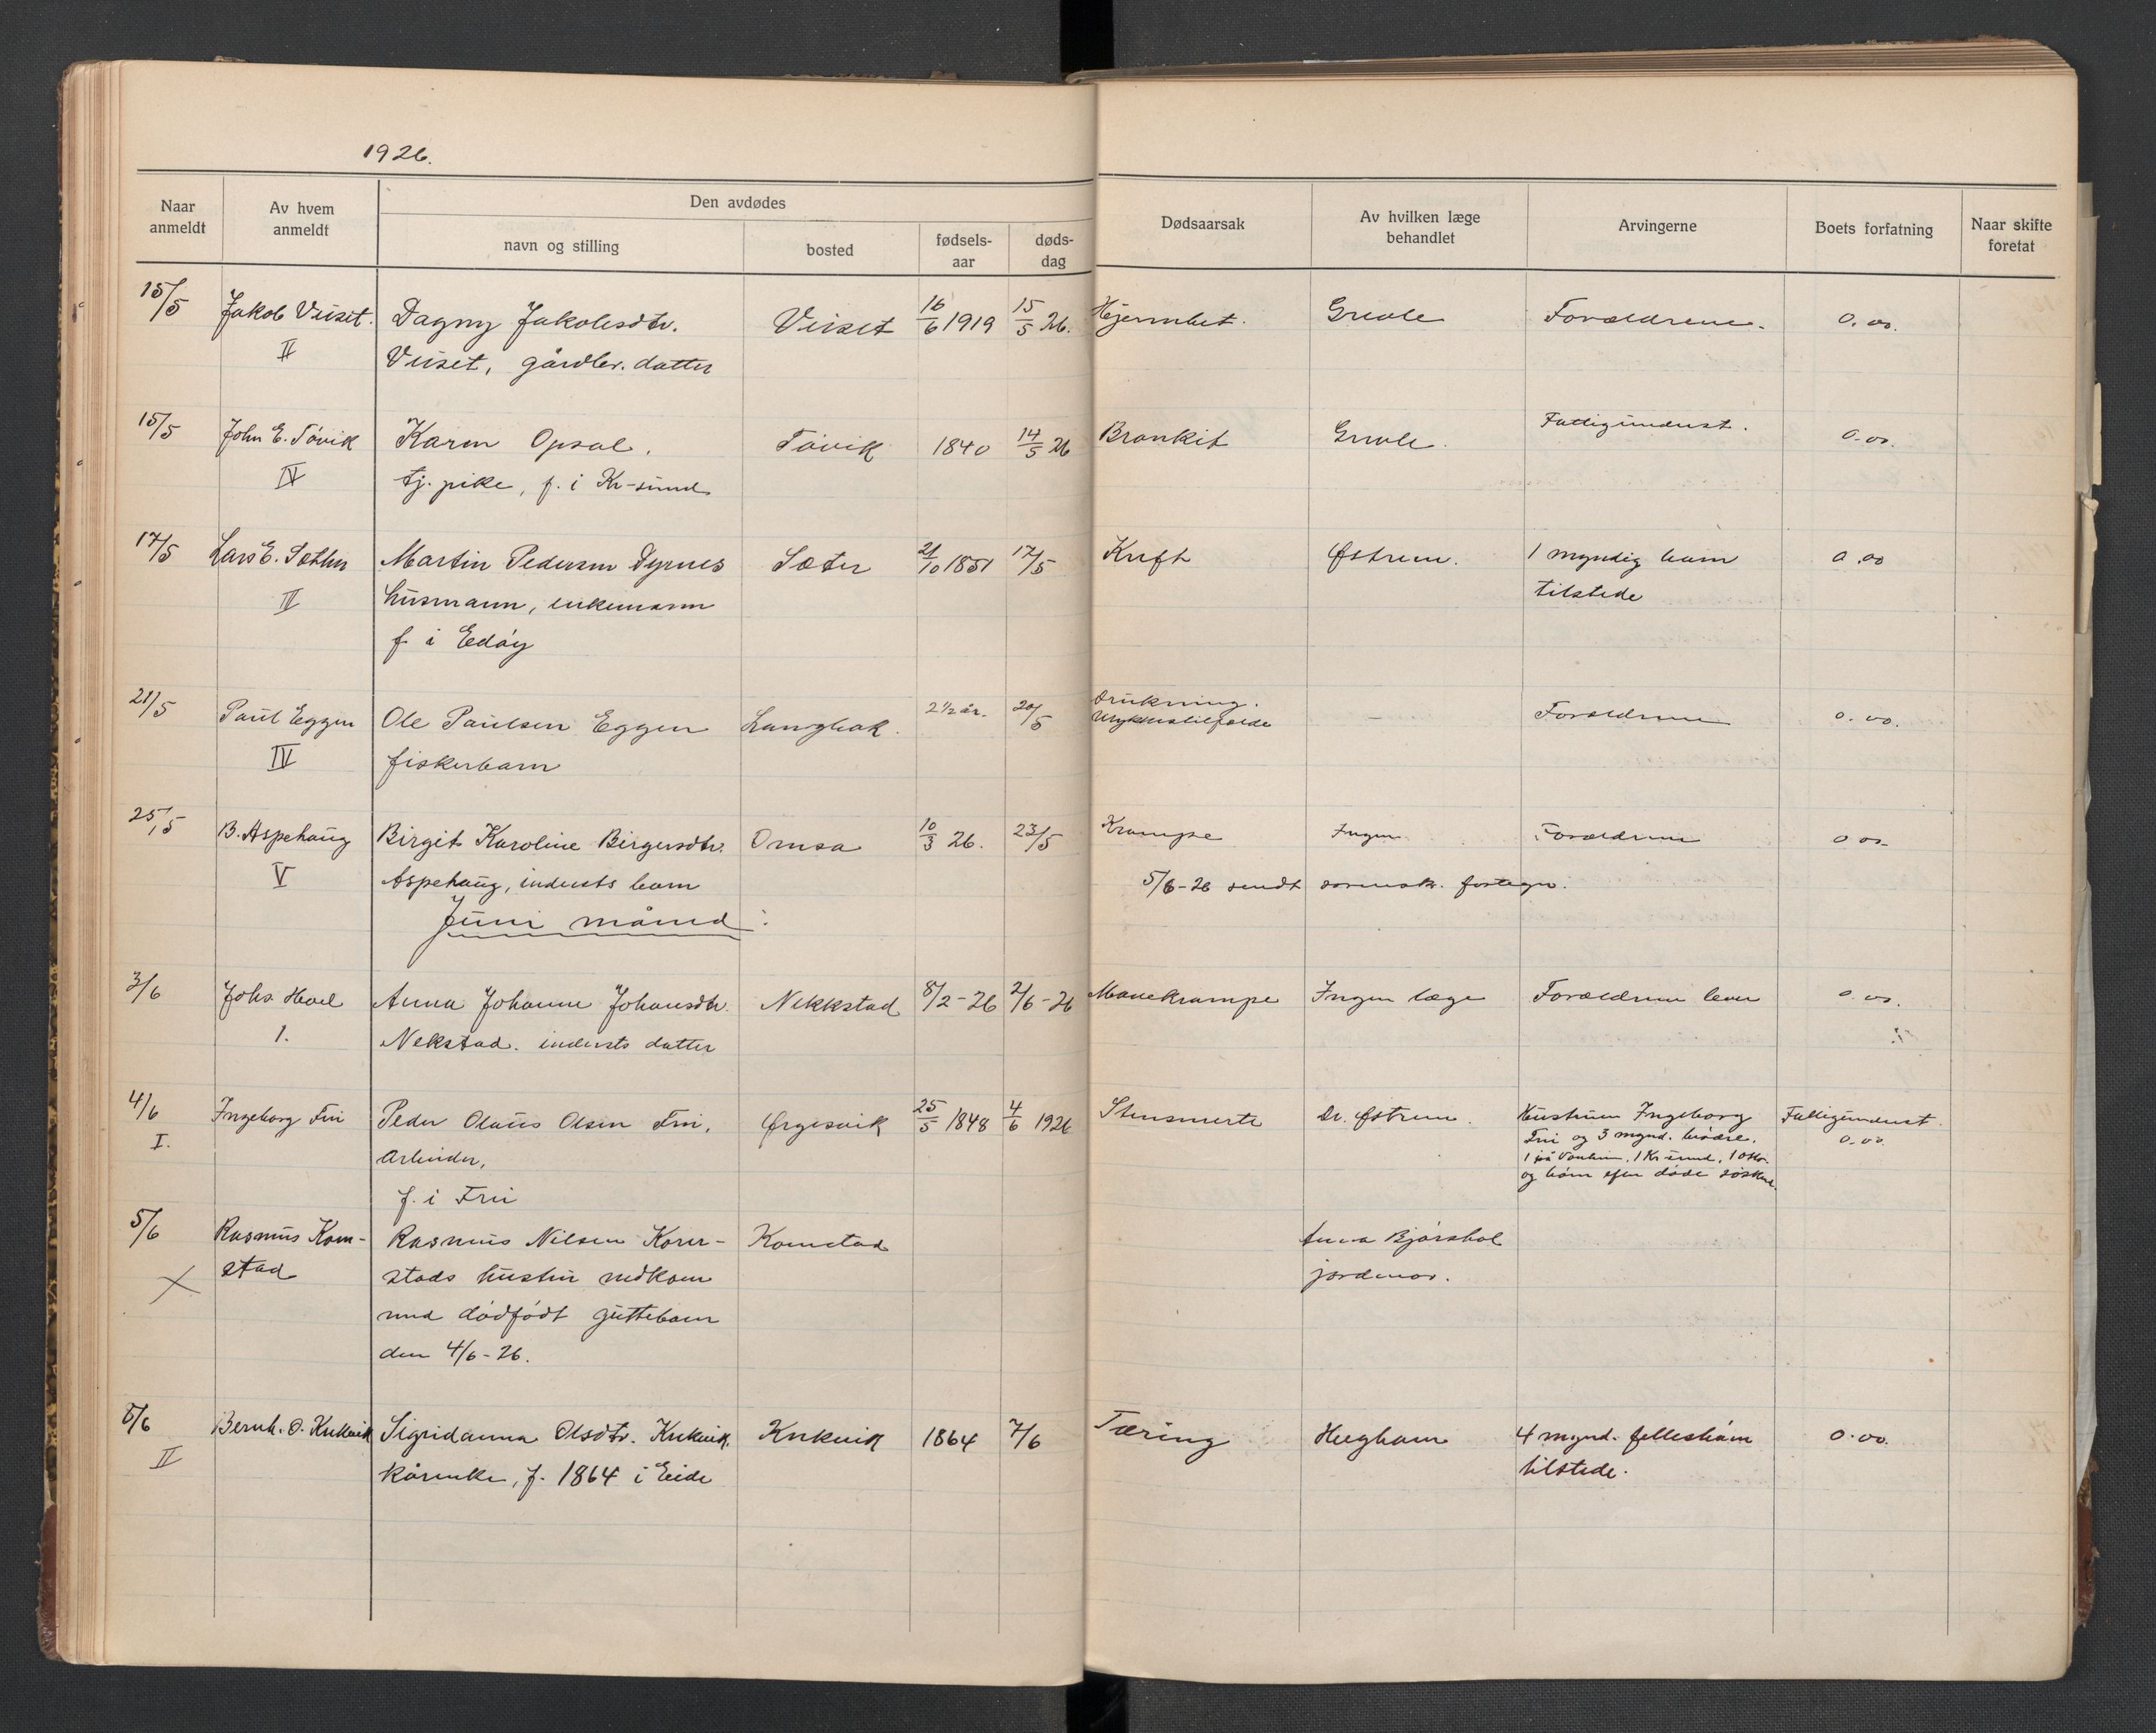 1926.
Naar anmeldt
Av hvem anmeldt
Den avdødes
navn og stilling
bosted
fødsels-aar
døds-dag
Dødsaarsak
Av hvilken læge behandlet
Arvingerne
Boets forfatning
Naar skifte foretat
15/5 Jakob Viiset. Dagny Jakobsdtr. Viiset 16/6 1919 15/5 26. Hjernebet. Forældrene. 0.00.
II Viiset, gårdbr. datter
15/5 John E. Tøvik Karen Opsal. Tøvik 1840 14/5 26 Bronkit Fattigunderst. 0.00.
IV tj. pike, f. i Kr-sund
17/5 Lars E. Martin Pedersen Dyrnes Sæter 21/10 1851 17/5 Kreft Østrem. 1 myndig barn 0.00
II husmann, enkemann tilstede
f. i Edøy
21/5 Paul Eggen Ole Paulsen Eggen Langbak. 2 1/2 år. 20/5 Drukning. — Forældrene 0.00.
IV fiskerbarn Ulykkestilfælde
25/5 B. Aspehaug Birgit Karoline Birgersdtr. Omsa 10/3 26. 23/5 Krampe Ingen Forældrene 0.00
V Aspehaug, indersts barn 5/6-26 sendt sorensk. fortegn.
Juni måned:
3/6 Johs. Anna Johanne Johansdtr. Nekkstad 8/2-26 2/6-26 Mavekrampe Ingen læge Forældrene lever 0.00.
1. Nekstad. indersts datter
4/6 Ingeborg Peder Olaus Olsen Ørgesvik 25/5 1848 4/6 1926 Dr. Østrem. Hustruen Ingeborg Fattigunderst.
I. Arbeider, og 3 mynd. brødre. 0.00.
f. i 1 på 1 Kr sund, 1 Oslo
og børn efter døde søsken.
5/6 Rasmus Kom- Rasmus Nilsen Kom- Komstad Anna Bjørshol
X stad stads hustru nedkom jordmor.
med dødfødt guttebarn
den 4/6-26.
8/6 Bernh. O. Knekvik Sigridanna Olsdtr. Knekvik. Knekvik 1864 7/6 Tæring 4 mynd. fellesbørn 0.00.
II kårenke, f. 1864 i Eide tilstede.